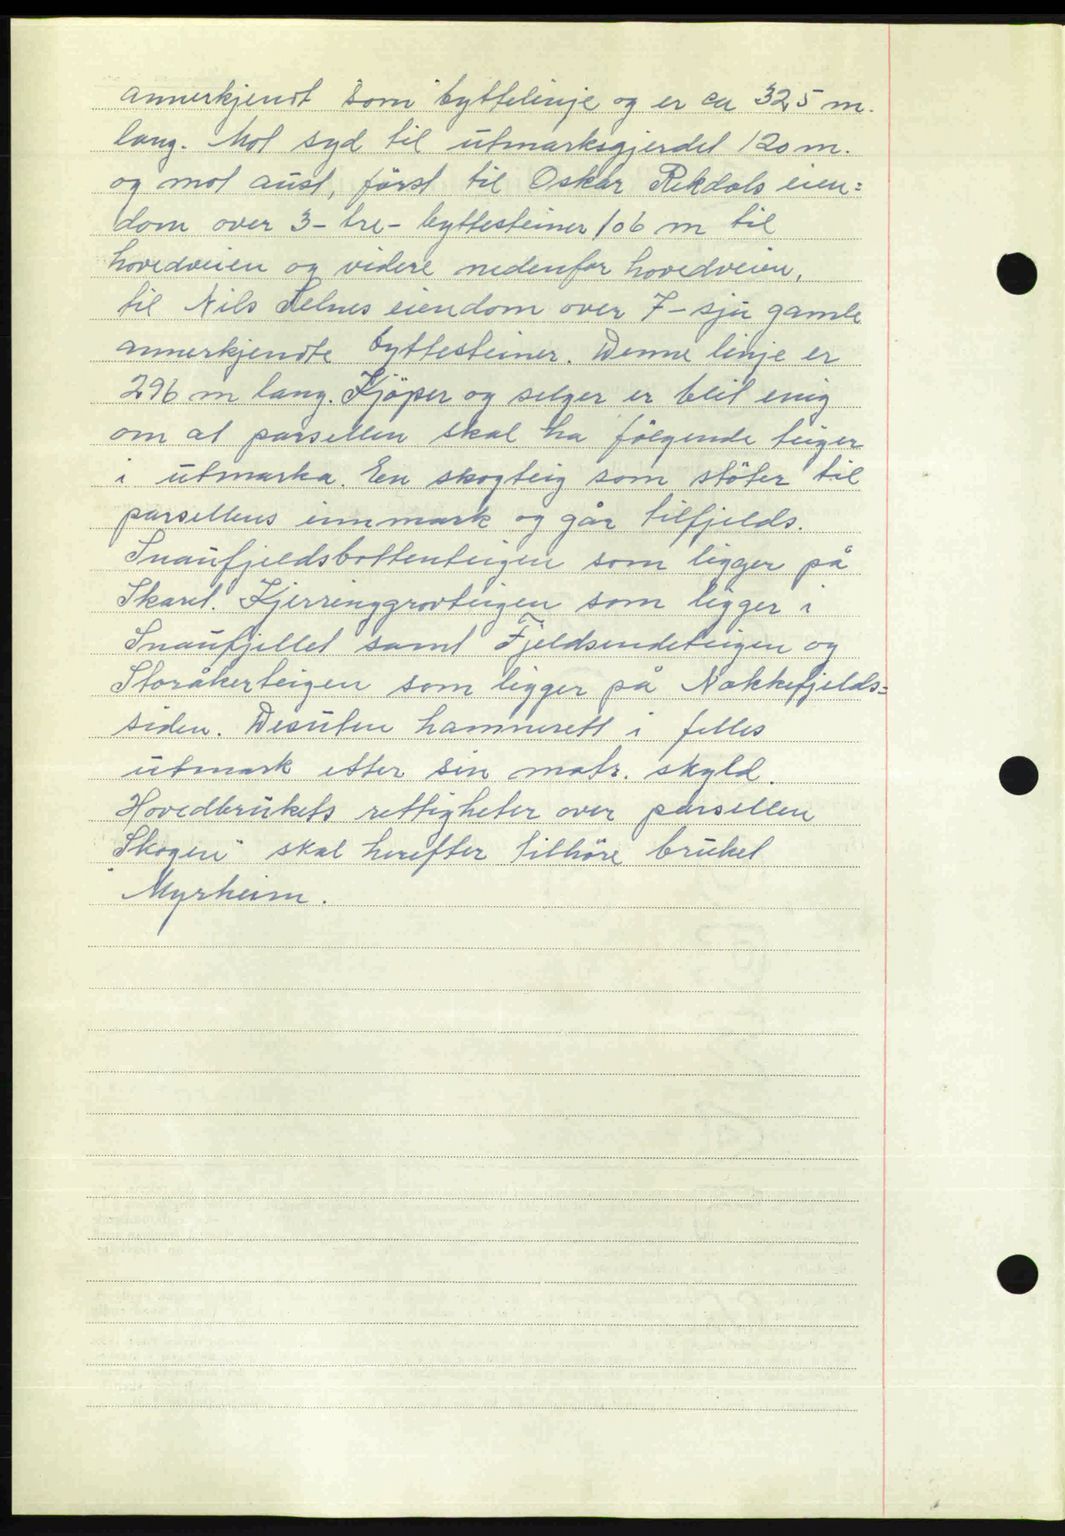 annerkjendt som byttelinje og er ca 325 m.
lang. Mot syd til utmarksgjerdet 120 m.
og mot aust, først til Oskar Rekdals eien=
dom over 3 - tre - byttesteiner 106 m til
hovedveien og videre nedenfor hovedveien,
til Nils Selnes eiendom over 7 - sju gamle
annerkjendte byttesteiner. Denne linje er
296 m lang. Kjøper og selger er blit enig
om at parsellen skal ha følgende teiger
i utmarka. En skogteig som støter til
parsellens innmark og går tilfjelds.
Snaufjeldsbottenteigen som ligger på
Skaret. Kjerringgrovteigen som ligger i
Snaufjellet samt Fjeldsendeteigen og
Storåkerteigen som ligger på Nakkefjelds=
siden. Desuten hamnerett i felles
utmark etter sin matr. skyld.
Hovedbrukets rettigheter over parsellen
Skogen" skal herefter tilhöre bruket
"Myrheim.